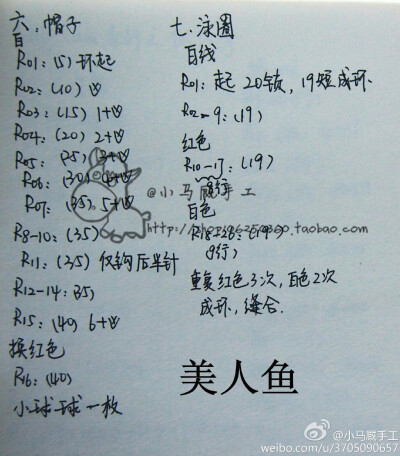 六、帽子
白
R01：(5)环起
R02：(10) ♡
R03：(15) 1+♡
R04：(20) 2+♡
R05：(25) 3+♡
R06：(30) 4+♡
R07：(35) 5+♡
R8-10：(35)
R11：(35) 仅钩后半针
R12-14：(35)
R15：(40) 6+♡
换红色
R16：(40)
小球球一枚
七、泳圈
白线
R01：起20锁，19短成环
R02-9：(19)
红色
R10-17：(19)
8行
白色
R18-26：(19)
(9行)
重复红色3次，白色2次
成环，缝合.
@小马威手工
taobao.com
美人鱼
@小马威手工
weibo.com/u/3705090657